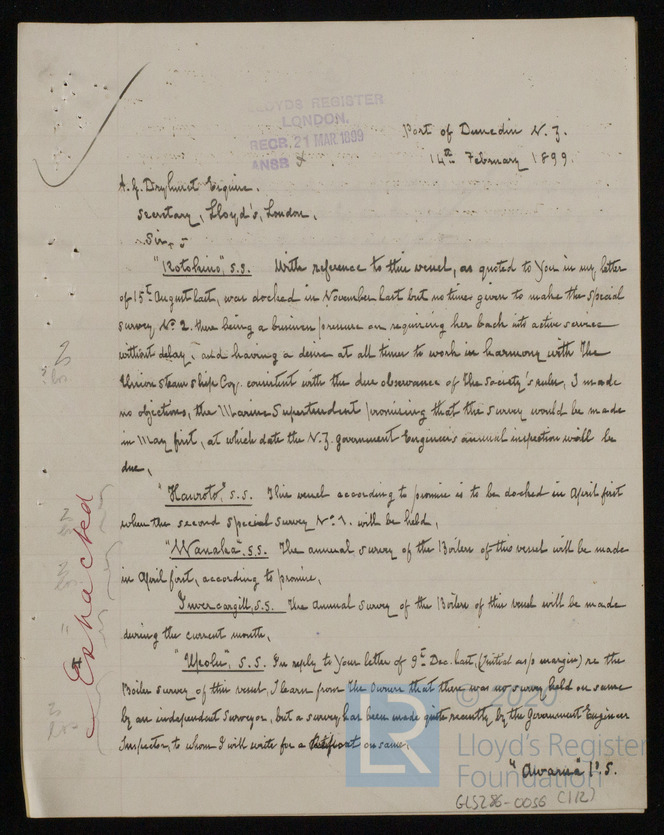 LLOYDS REGISTER
LONDON.
RECR. 21 MAR 1899
ANSB
Port of Dunedin N.Z.
14th February 1899.
A.G. Dryhurst Esquire.
Secretary, Lloyd's, London.
Sir,
"Rotokino", s.s. With reference to this vessel, as quoted to you in my letter
of 15th August last, was docked in November last but no time given to make the special
survey No 2. there being a business pressure on requiring her back into active service
without delay, and having a desire at all times to work in harmony with the
Union Steam Ship Coy. consistent with the due observance of the Society's rules, I made
no objections, the Marine Superintendent promising that the survey would be made
in May first, at which date the N.Z. government Engineers annual inspection will be
due.
"Hauroto", s.s. This vessel according to promise is to be docked in April first
when the second special survey No 1. will be held.
"Wanaka", s.s. The annual survey of the Boilers of this vessel will be made
in April first, according to promise.
Invercargill, s.s. The annual survey of the Boilers of this vessel will be made
during the current month.
"Upolu", s.s. In reply to your letter of 9th Dec. last, (Initial as p margin) re the
Boiler survey of this vessel, I learn from the owners that there was no survey held on same
by an independent surveyor, but a survey has been made quite recently, by the Government Engineer
Inspector, to whom I will write for a on same.
"Awarua" P.S.
Extracted
© 2020
LR
Lloyd's Register
Foundation
GLS286-0056 (1/2)